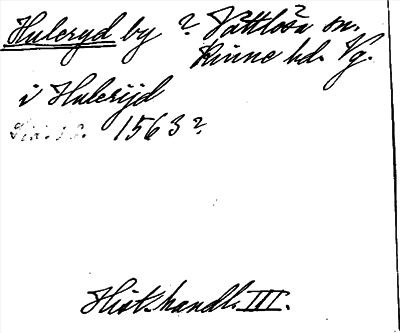 Huleryd by ? Vättlösa ? sn.
Kinne hd. Vg.
i Hulerijd
1563 ?
Hist. handl. III.